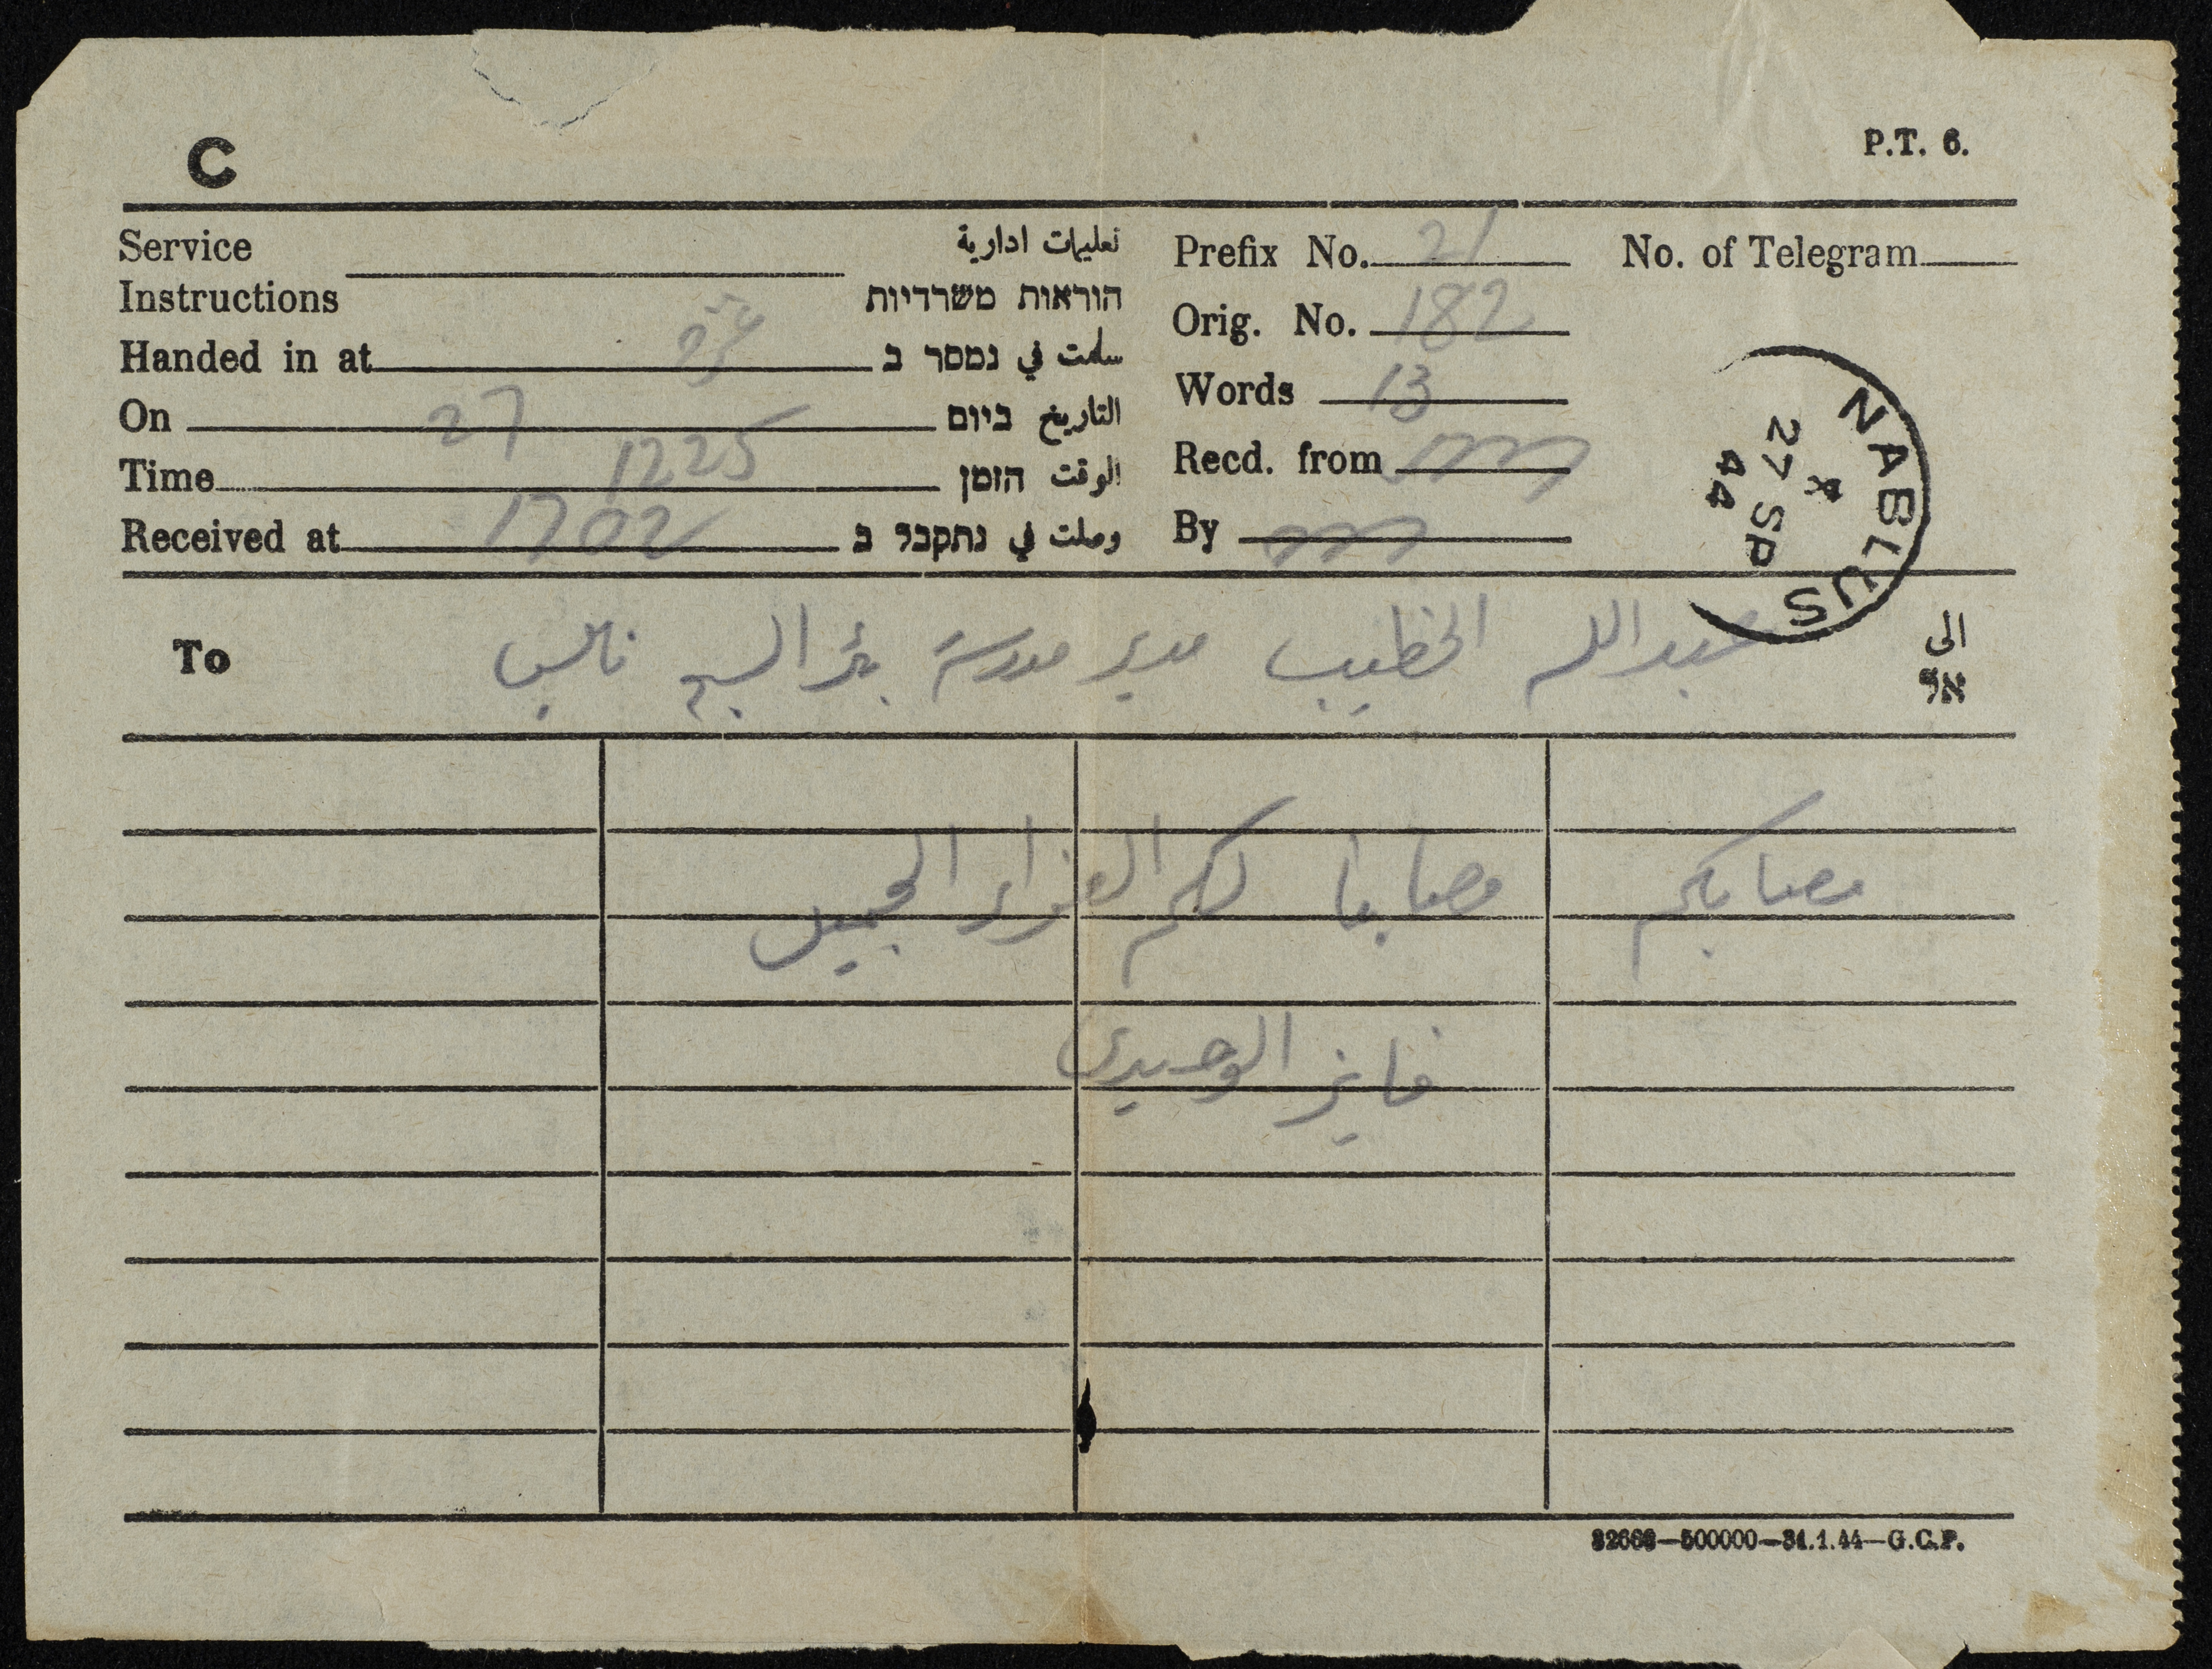 C
P.T. 6.
Service Instructions تعليمات ادارية הוראות משרדיות
Handed in at غزة سلمت في נמסר ב
On 27 التاريخ ביום
Time 1225 الوقت הזמן
Received at 1702 وصلت في נתקבל ב
Prefix No. 21
No. of Telegram
Orig. No. 182
Words 13
Recd. from
By
NABLUS
27 SP
44
To عبدالله الخطيب مدير مدرسة بئر السبع نابلس الى אל
مصابكم مصابنا لكم العزاء الجميل
فايز الوحيدي
32666—500000—31.1.44—G.C.P.